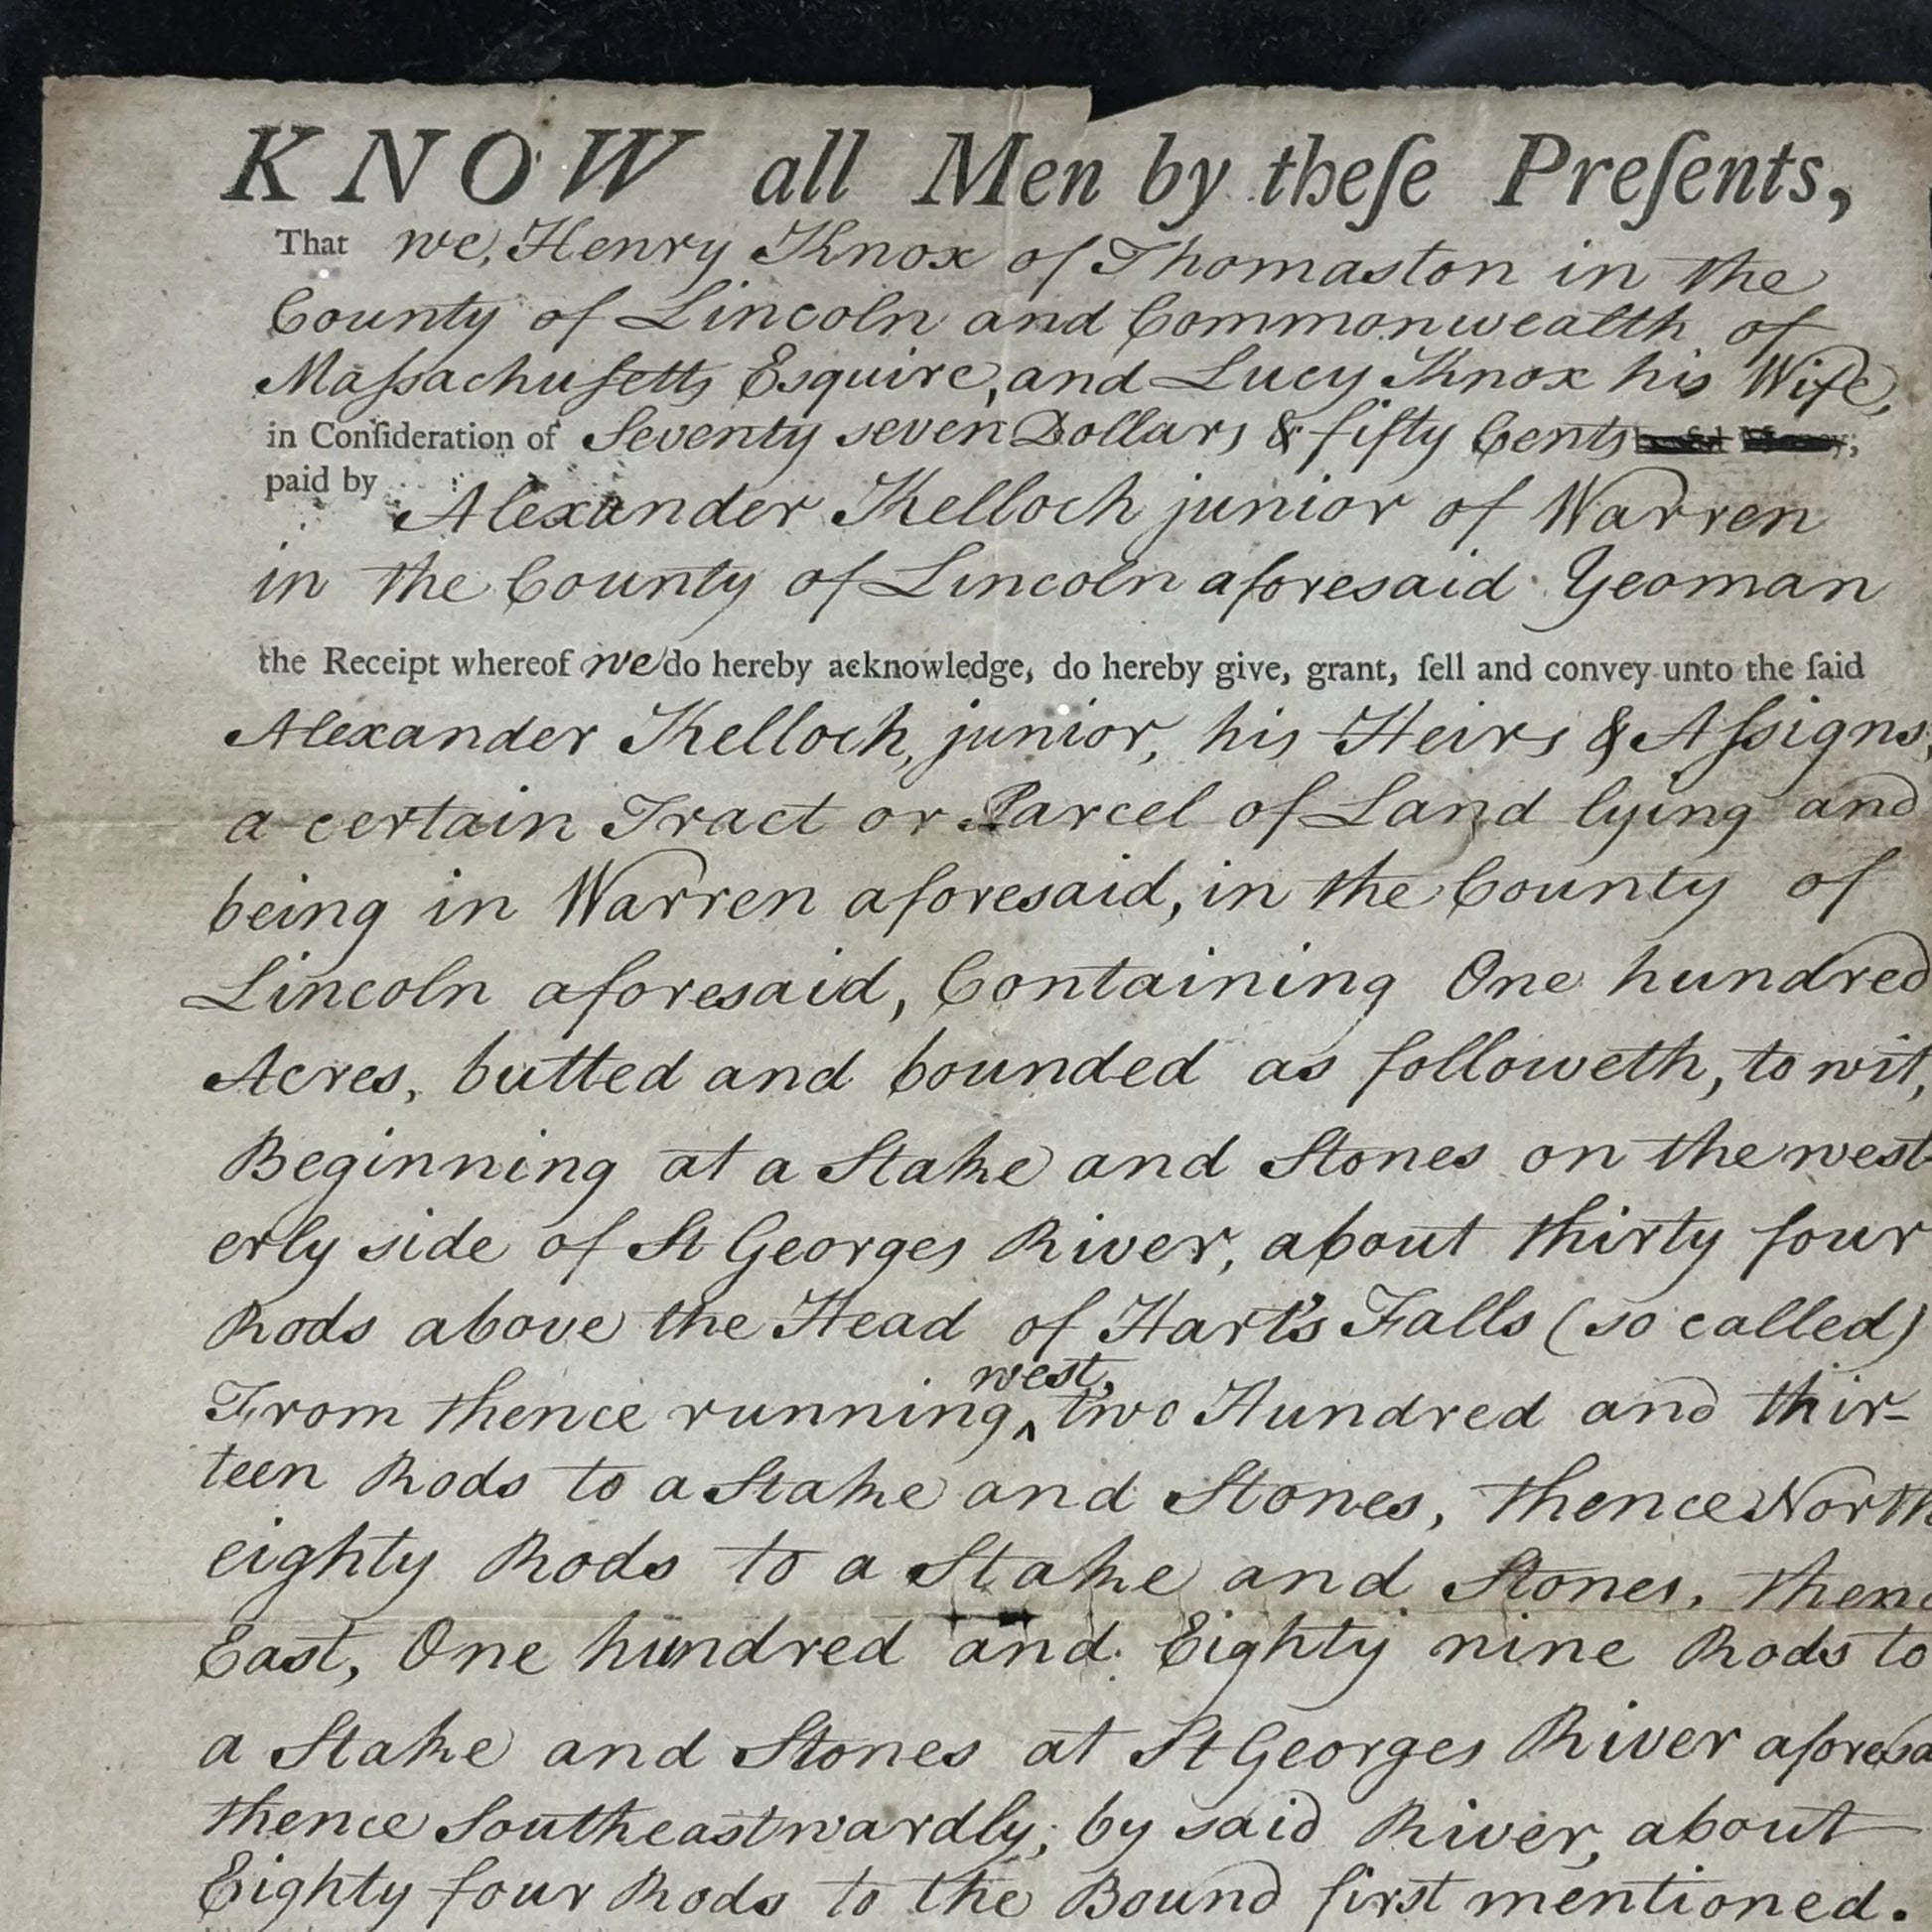 KNOW all Men by theſe Preſents,
That we, Henry Knox of Thomaston in the
County of Lincoln and Commonwealth of
Maſsachuſetts Esquire, and Lucy Knox his Wife,
in Conſideration of Seventy seven Dollars & fifty Cents
paid by Alexander Kelloch junior of Warren
in the County of Lincoln aforesaid Yeoman
the Receipt whereof we do hereby acknowledge, do hereby give, grant, ſell and convey unto the ſaid
Alexander Kelloch, junior, his Heirs & Aſsigns,
a certain Tract or Parcel of Land lying and
being in Warren aforesaid, in the County of
Lincoln aforesaid, Containing One hundred
Acres, butted and bounded as followeth, to wit,
Beginning at a Stake and Stones on the west-
erly side of St Georges River, about thirty four
Rods above the Head of Hart's Falls (so called)
From thence running west, two Hundred and thir-
teen Rods to a Stake and Stones, thence North
eighty Rods to a Stake and Stones, thenc
East, One hundred and Eighty nine Rods to
a Stake and Stones at St Georges River aforesa
thence Southeastwardly, by said River, about
Eighty four Rods to the Bound first mentioned.